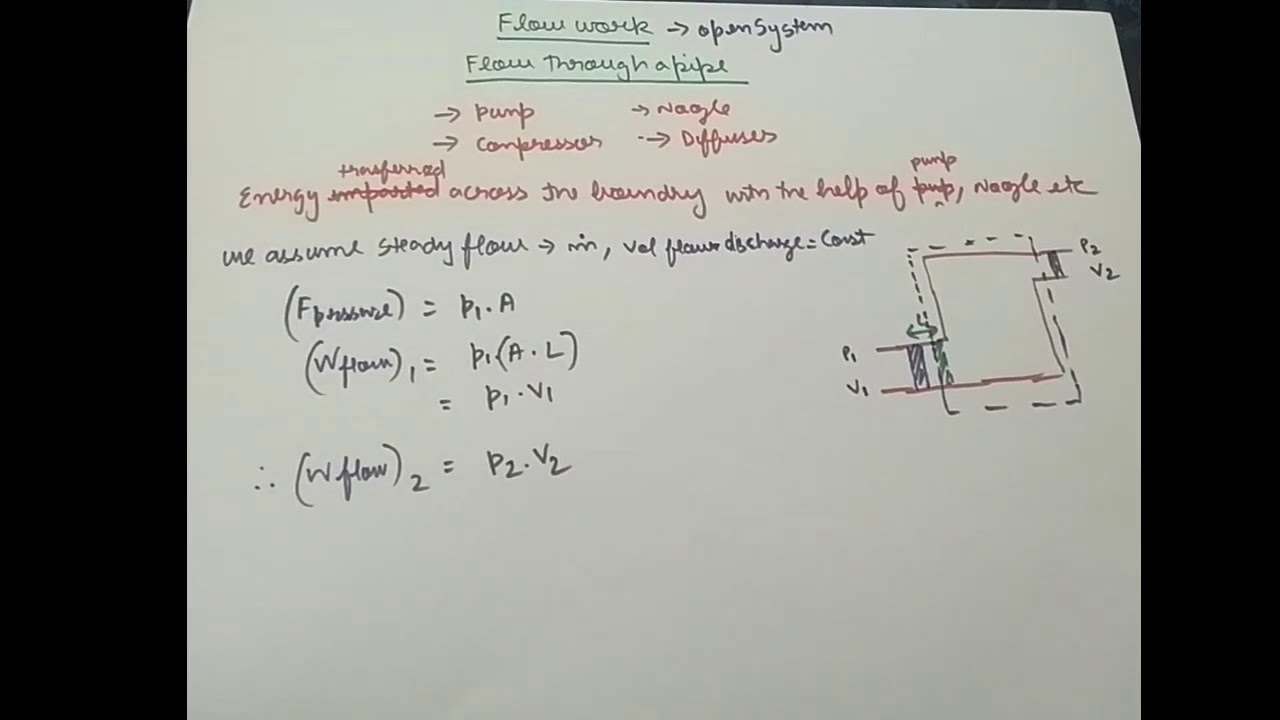 Flow work → open System
Flow Through a pipe
→ pump → Nozzle
→ Compressor → Diffuser
transferred pump
Energy imparted across the boundry with the help of pump, Nozzle etc
we assume steady flow → ṁ, vol flow discharge = Const
(Fpressure) = p₁ · A
(Wflow)₁ = p₁(A · L)
= p₁ · V₁
∴ (Wflow)₂ = p₂ · V₂
P₂
V₂
L
P₁
V₁